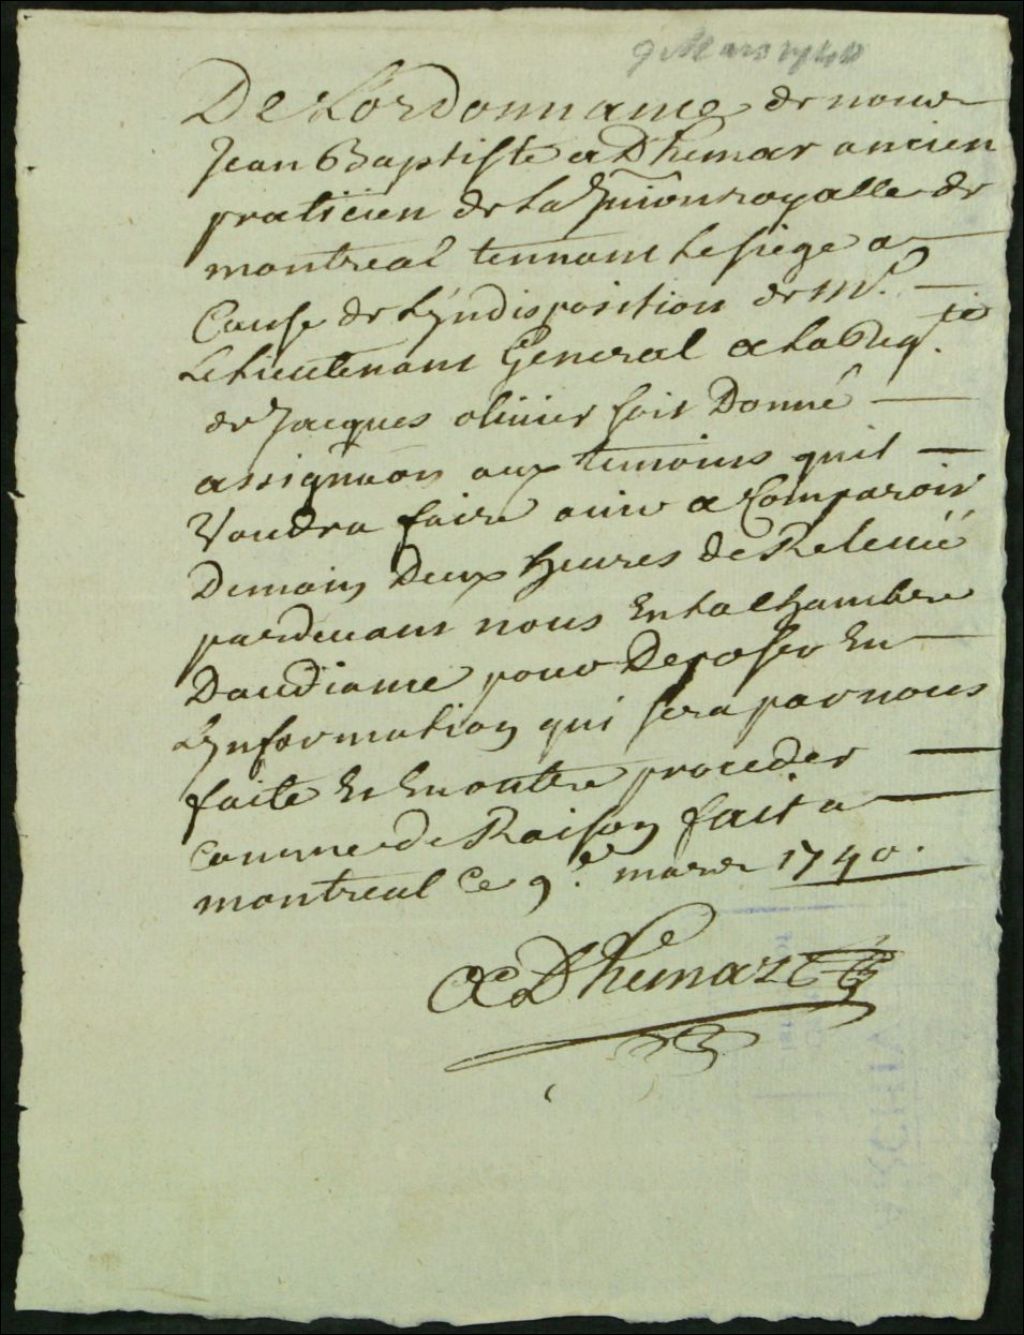 9 Mars 1740
De Lordonnance de nous
Jean Baptiste aDhemar ancien
praticien de La Jurion royalle de
montreal tennant Le siege a
Cause de Lyndisposition de Mr.
Le Lieutenant General a La Reqte.
de Jacques olivier soit Donné
assignaon aux temoins quil
Voudra faire ouir a Comparoir
Demain Deux heures de Relevée
pardevant nous En La Chambre
Daudiance pour Deposer En
Lynformation qui sera par nous
faite Et En outre proceder
comme de Raison fait a
montreal Ce 9e. mars 1740.
ADhemar